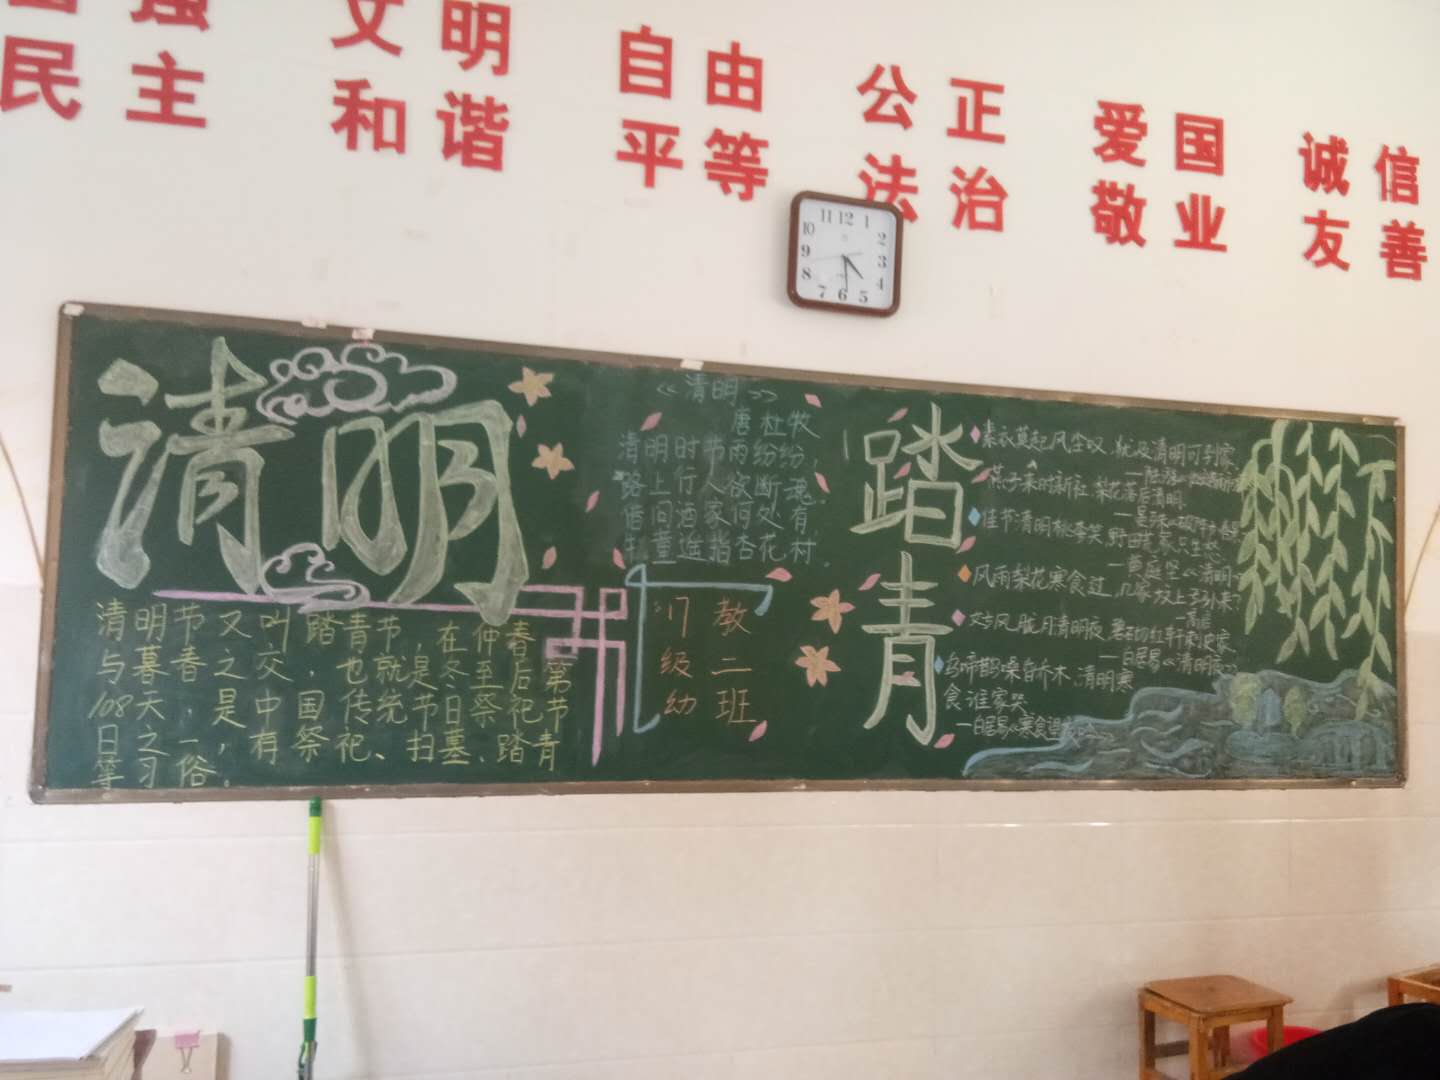 强 文明 自由 公正 爱国 诚信
民主 和谐 平等 法治 敬业 友善
11 12 1
10 2
9 3
8 4
7 6 5
清明
清明节又叫踏青节,在仲春
与暮春之交,也就是冬至后第
108天,是中国传统节日祭祀节
日之一,有祭祀、扫墓、踏青
等习俗.
《清明》
唐 杜牧
清明时节雨纷纷,
路上行人欲断魂.
借问酒家何处有
牧童遥指杏花村.
17教
级二
幼班
踏青
素衣莫起风尘叹,犹及清明可到家.
燕子来时新社,梨花落后清明.
佳节清明桃李笑,野田
—黄庭坚《清明》
风雨梨花寒食过,几家坟上子孙来?
—高启
—白居易《清明夜》
乌啼鹊噪昏乔木,清明寒
食谁家哭.
—白居易《寒食野望吟》